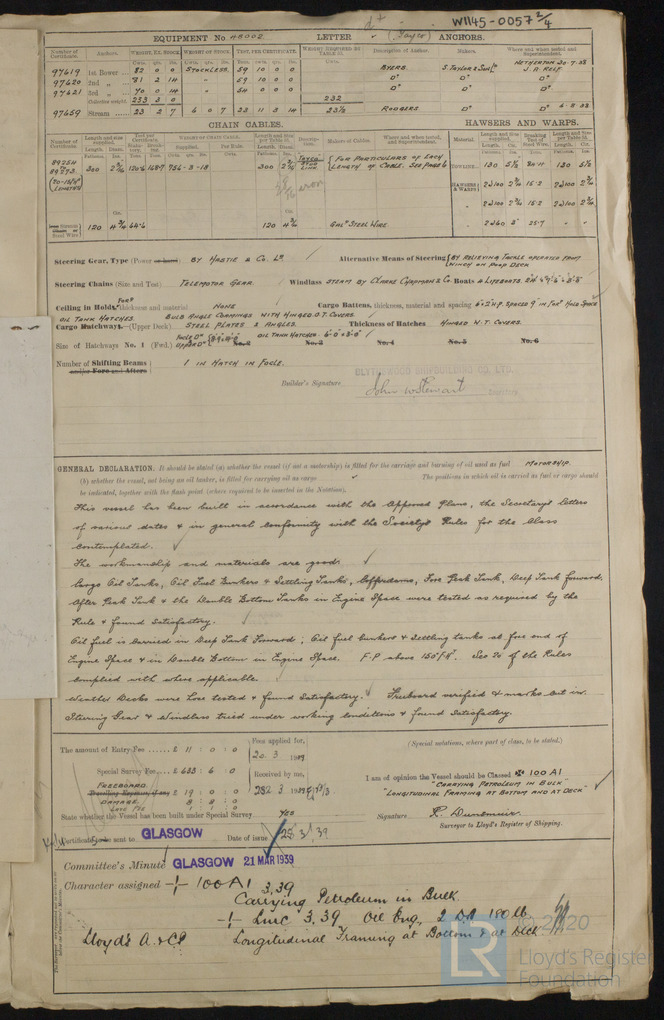 W1145-0057 2/4
EQUIPMENT No 48002 LETTER d+ (Foyer) ANCHORS.
Number of Certificate. Anchors. WEIGHT, EX. STOCK. WEIGHT OF STOCK. TEST, PER CERTIFICATE. WEIGHT REQUIRED BY TABLE 31. Description of Anchor. Makers. Where and when tested and Superintendent.
97619 1st Bower 82 0 0 STOCKLESS. 59 10 0 0 BYERS. S. TAYLOR & SONS Ld NETHERTON 20.7.38
97620 2nd „ 81 2 14 59 10 0 0 Do Do J. A. RELF.
97621 3rd „ 70 0 14 54 0 0 0 Do Do Do
Collective weight 233 3 0 232
97659 Stream 23 2 7 6 0 7 23 11 3 14 23½ RODGERS Do Do 6.8.38
CHAIN CABLES. HAWSERS AND WARPS.
Number of Certificate. Length and size supplied. Test per Certificate. WEIGHT OF CHAIN CABLE. Length and Size per Table 31. Description. Makers of Cables. Where and when tested, and Superintendent. Material. Length and Size supplied. Breaking Test of Steel Wire. Length and Size per Table 31.
300 2 5/16 120·6 168·7 756-3-18 300 2 5/16 { FOR PARTICULARS OF EACH LENGTH OF CABLE. SEE PAGE 6 TOWLINE 130 5½ 130 5½
HAWSERS & WARPS 2@100 2¾ 15·2 2@100 2¾
2@100 2¾ 15·2 2@100 2¾
Stream Steel Wire 120 4¾ 64·6 120 4¾ GALd STEEL WIRE 2@60 3" 25·7 " "
Steering Gear, Type (Power or hand) BY HASTIE & CO. Ld Alternative Means of Steering { BY RELIEVING TACKLE OPERATED FROM WINCH ON POOP DECK
Steering Chains (Size and Test) TELEMOTOR GEAR. Windlass STEAM BY CLARKE CHAPMAN & CO. Boats 4 LIFEBOATS.
Ceiling in Holds, thickness and material NONE Cargo Battens, thickness, material and spacing 6"×2" W.P. SPACED 9" IN FORd HOLD SPACE
OIL TANK HATCHES. BULB ANGLE COAMINGS WITH HINGED O.T. COVERS.
Cargo Hatchways.—(Upper Deck) STEEL PLATES & ANGLES. Thickness of Hatches HINGED W.T. COVERS.
Size of Hatchways No. 1 (Fwd.) OIL TANK HATCHES. 6'-0" × 3'-0" No. 2 No. 3 No. 4 No. 5 No. 6
Number of Shifting Beams and/or Fore and Afters } 1 IN HATCH IN FOCLE.
BLYTHSWOOD SHIPBUILDING CO. LTD.
Builder's Signature John W Stewart Secretary
GENERAL DECLARATION. It should be stated (a) whether the vessel (if not a motorship) is fitted for the carriage and burning of oil used as fuel MOTORSHIP.
(b) whether the vessel, not being an oil tanker, is fitted for carrying oil as cargo The positions in which oil is carried as fuel or cargo should
be indicated, together with the flash point (where required to be inserted in the Notation).
This vessel has been built in accordance with the Approved Plans, the Secretary's letters
of various dates & in general conformity with the Society's Rules for the Class
contemplated.
The workmanship and materials are good.
Cargo Oil Tanks, Oil Fuel Bunkers & Settling Tanks, Cofferdams, Fore Peak Tank, Deep Tank forward,
After Peak Tank & the Double Bottom Tanks in Engine Space were tested as required by the
Rule & found Satisfactory.
Oil fuel is carried in Deep Tank Forward, Oil fuel bunkers & Settling tanks at fore end of
Engine Space & in Double Bottom in Engine Space. F.P above 150°F. Sec 20 of the Rules
complied with where applicable.
Weather Decks were hose tested & found Satisfactory. Freeboard verified & marks cut in.
Steering Gear & Windlass tried under working conditions & found Satisfactory.
The amount of Entry Fee £ 11 : 0 : 0 Fees applied for, 20.3.1939
(Special notations, where part of class, to be stated.)
Special Survey Fee £ 633 : 6 : 0
FREEBOARD Travelling Expenses, if any £ 19 : 0 : 0 Received by me, 3.1939
DAMAGE 8 : 8 : 0
I am of opinion the Vessel should be Classed ✠ 100 A1
"CARRYING PETROLEUM IN BULK"
"LONGITUDINAL FRAMING AT BOTTOM AND AT DECK"
State whether the Vessel has been built under Special Survey YES
Signature R. Dunsmuir
Surveyor to Lloyd's Register of Shipping.
Certificate to be sent to GLASGOW Date of issue 25.3.39
Committee's Minute GLASGOW 21 MAR 1939
Character assigned ✠ 100A1 3,39
Carrying Petroleum in Bulk
✠ LMC 3,39 Oil Eng., 2 D.B 180 lb
Lloyd's A & CP Longitudinal Framing at Bottom & at Deck
© 2020
LR Lloyd's Register Foundation